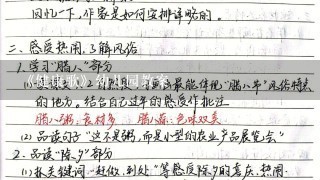 回忆一下，作家是如何安排详略的。
二、感受热闹，了解风俗
1. 学习“腊八”部分
《健康歌》幼儿园教案
最能体现“腊八节”风俗特点
的地方。结合自己过年的感受作批注
腊八粥：食材多 腊八蒜：色味双美
(2) 品读句子“这不是粥，而是小型的农业产品展览会”
2. 品读“除夕”部分
(1) 抓关键词，“赶做，到处”等感候除夕的喜庆、热闹